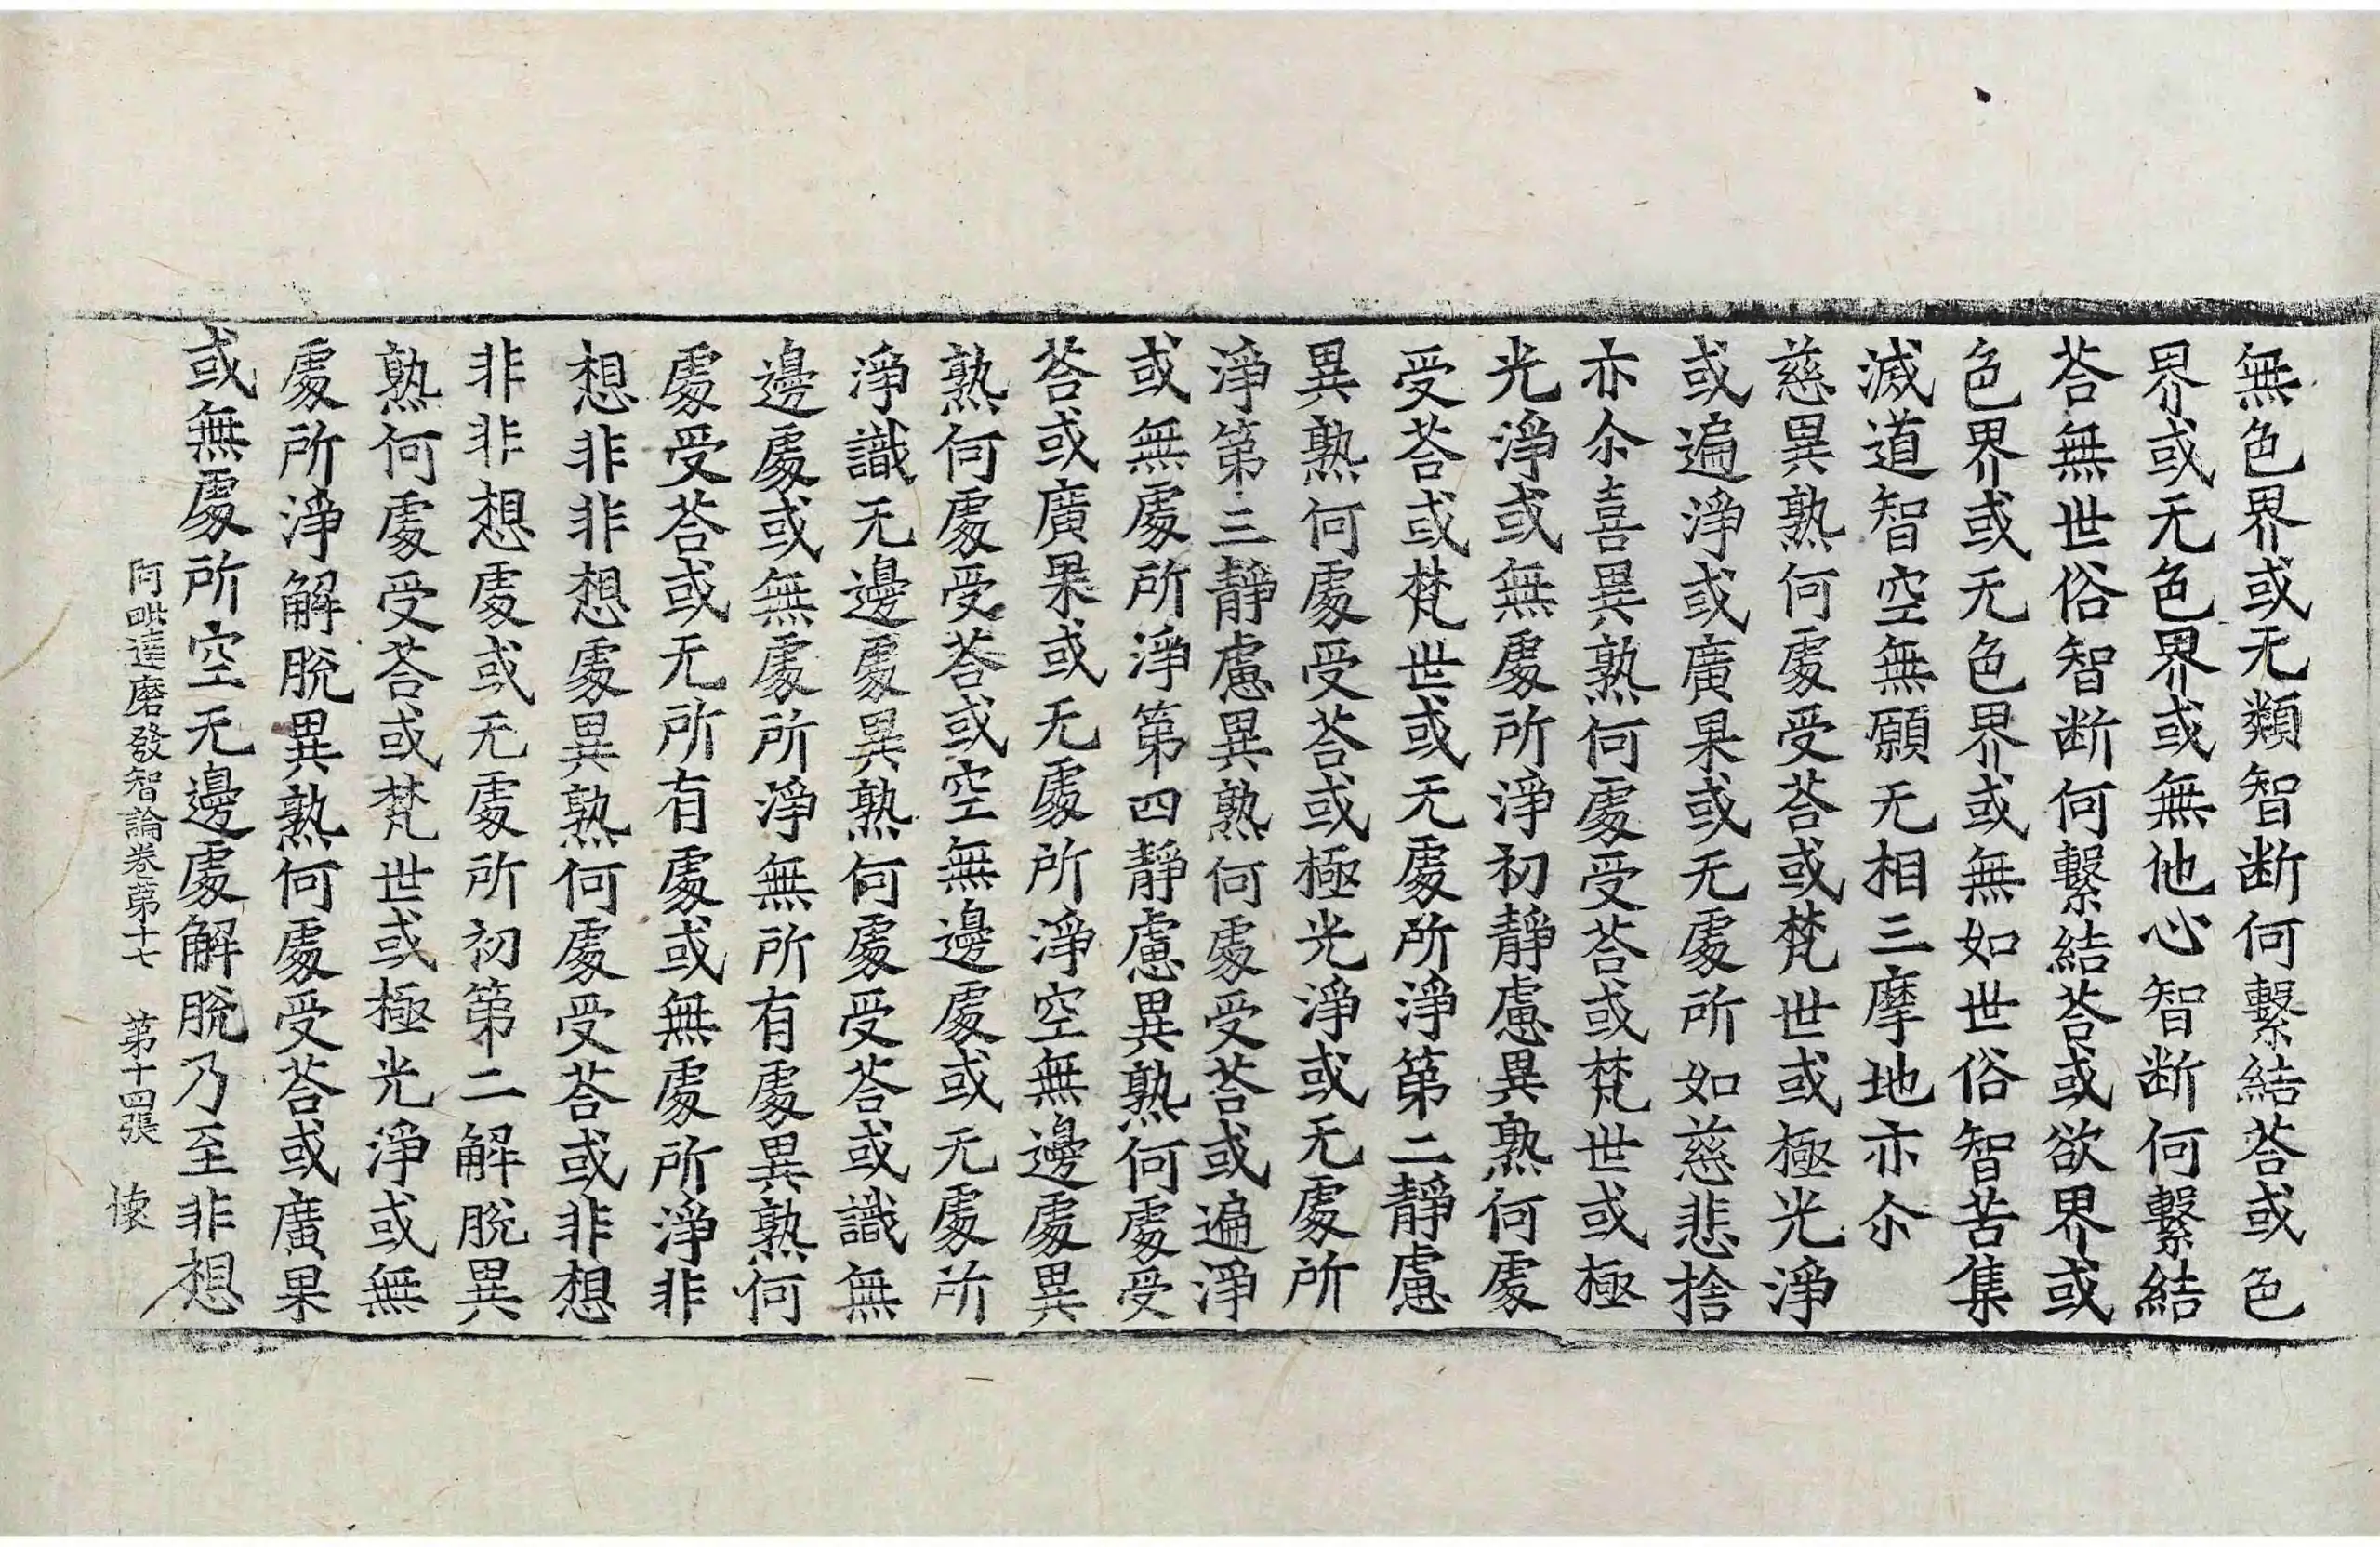 無色界或无類智断何繫結荅或色
界或无色界或無他心智断何繫結
荅無世俗智断何繫結荅或欲界或
色界或无色界或無如世俗智苦集
滅道智空無願无相三摩地亦尒
慈異熟何處受荅或梵世或極光淨
或遍淨或廣果或无處所如慈悲捨
亦尒喜異熟何處受荅或梵世或極
光淨或無處所淨初靜慮異熟何處
受荅或梵世或无處所淨第二靜慮
異熟何處受荅或極光淨或无處所
淨第三靜慮異熟何處受荅或遍淨
或無處所淨第四靜慮異熟何處受
荅或廣果或无處所淨空無邊處異
熟何處受荅或空無邊處或无處所
淨識无邊處異熟何處受荅或識無
邊處或無處所淨無所有處異熟何
處受荅或无所有處或無處所淨非
想非非想處異熟何處受荅或非想
非非想處或无處所初第二解脫異
熟何處受荅或梵世或極光淨或無
處所淨解脫異熟何處受荅或廣果
或無處所空无邊處解脫乃至非想
阿毗達磨發智論卷第十七　第十四張　懐